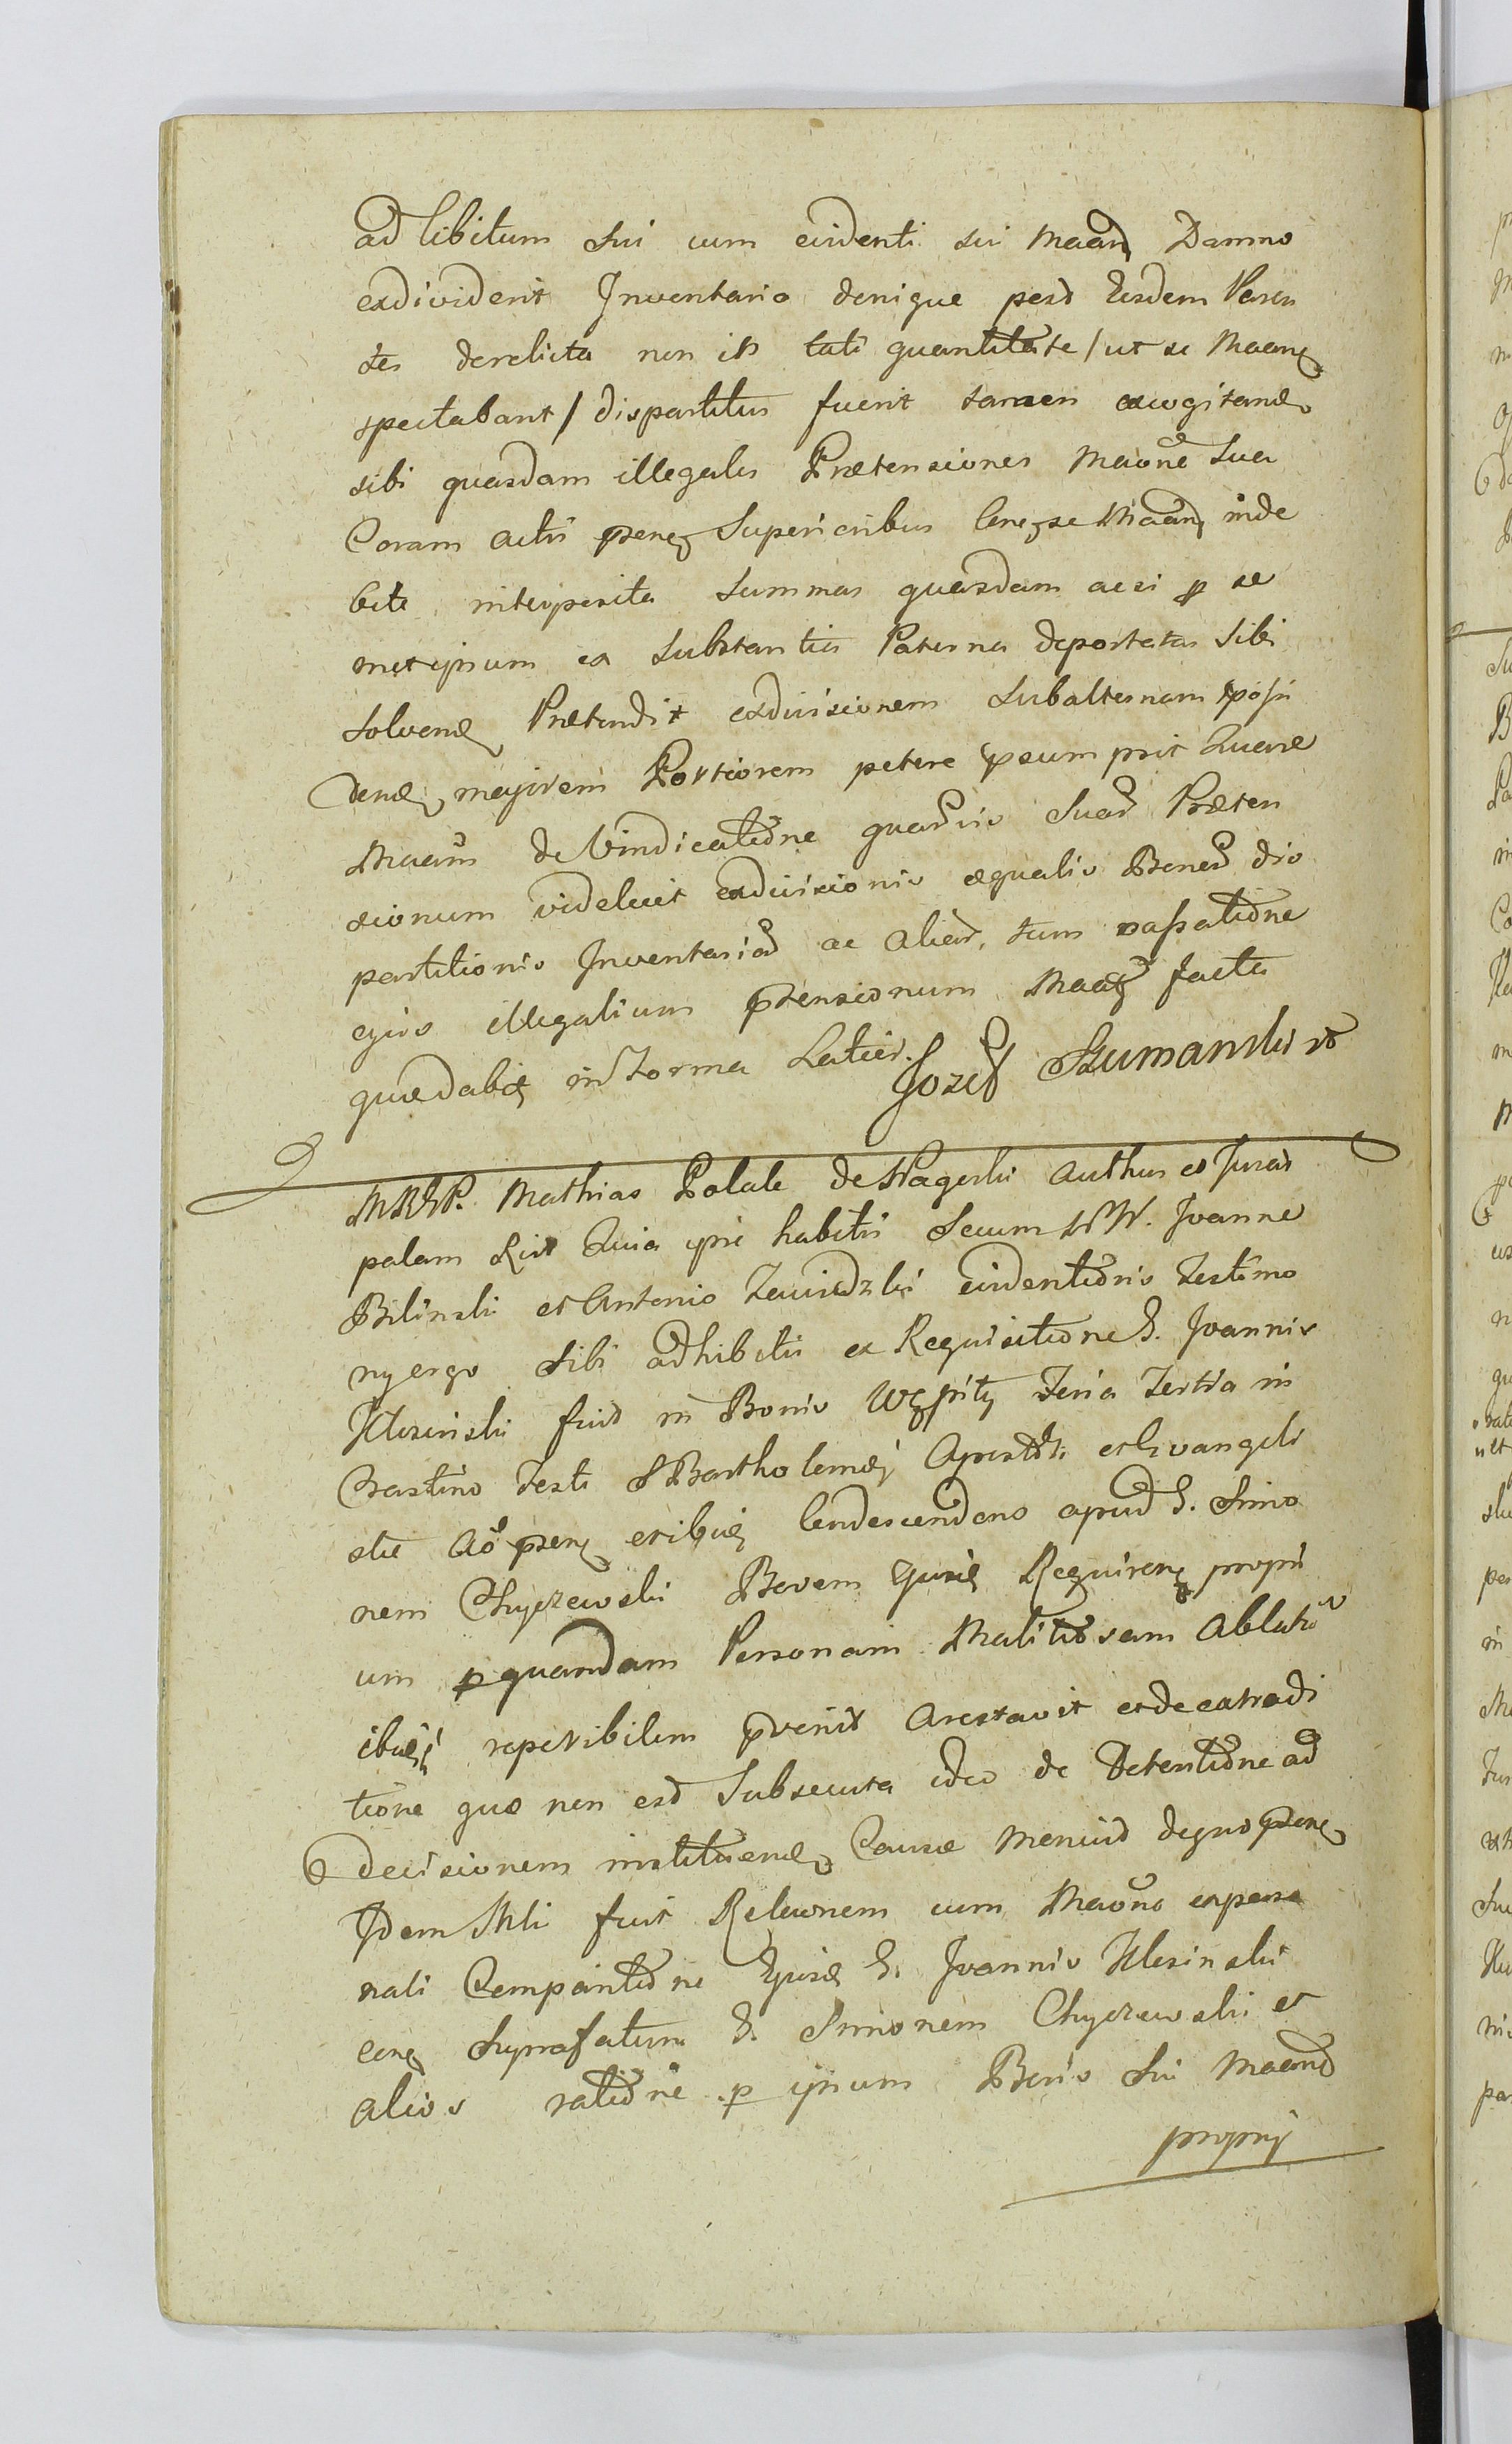 ad libitum sui cum evidenti sui Maan Damno
exdiviserit Inventario denique post Eisdem Paren
tes derelicta non in tali quantitate / ut se Maane
spectabant / dispartitus fuerit tamen excogitand
sibi quasdam illegales Prætensiones Maone sua
Coram actis psen Superioribus Cone se Maan inde
bite interposita Summas quasdam acsi p se
metipsum ex Substantia Paterna deportatas Sibi
solvend Prætendit exdivisionem Subalternam
dend majorem Portionem petere ipsum Quare
Maan de Vindicatione Suar Præten
sionum videlicet exdivisionis æqualis Bonor dis
partitionis Inventarior ac aliar, tum cassatione
ejus illegalium ptensionum facta
quæ dabit in Forma Latior. Jozef Szumanski
Mathias Polak de Nagorki Authus et Jurat
palam Quia ipse habitis Secum NN. Joanne
Bilinski et Antonio Zawidzki evidentioris Testimo
ny ergo Sibi adhibitis ex Requisitione G. Joannis
Klosinski fuit in Bonis Wępiły Feria Tertia in
Crastino Festi S Bartholemæi Apostoli et Evangeli
stæ Ao psen et ibid Condescendens apud G. Simo
nem Chyczewski Bovem Ejusd Requiren propri
um p quandam Personam Malitiosam Ablatu
ibid reperibilem pvenit Arestavit et de extradi
tione quæ non est Subsecuta ideo de Detentione ad
decisionem instituend Causæ monuit
Idem Mli fuit Relnem cum Maone
nali Compatione Ejusd G. Joannis Klosinski
con Suprafatum G. Simonem Chyczewski et
alios ratione p ipsum Bovis Sui Maand
proprij